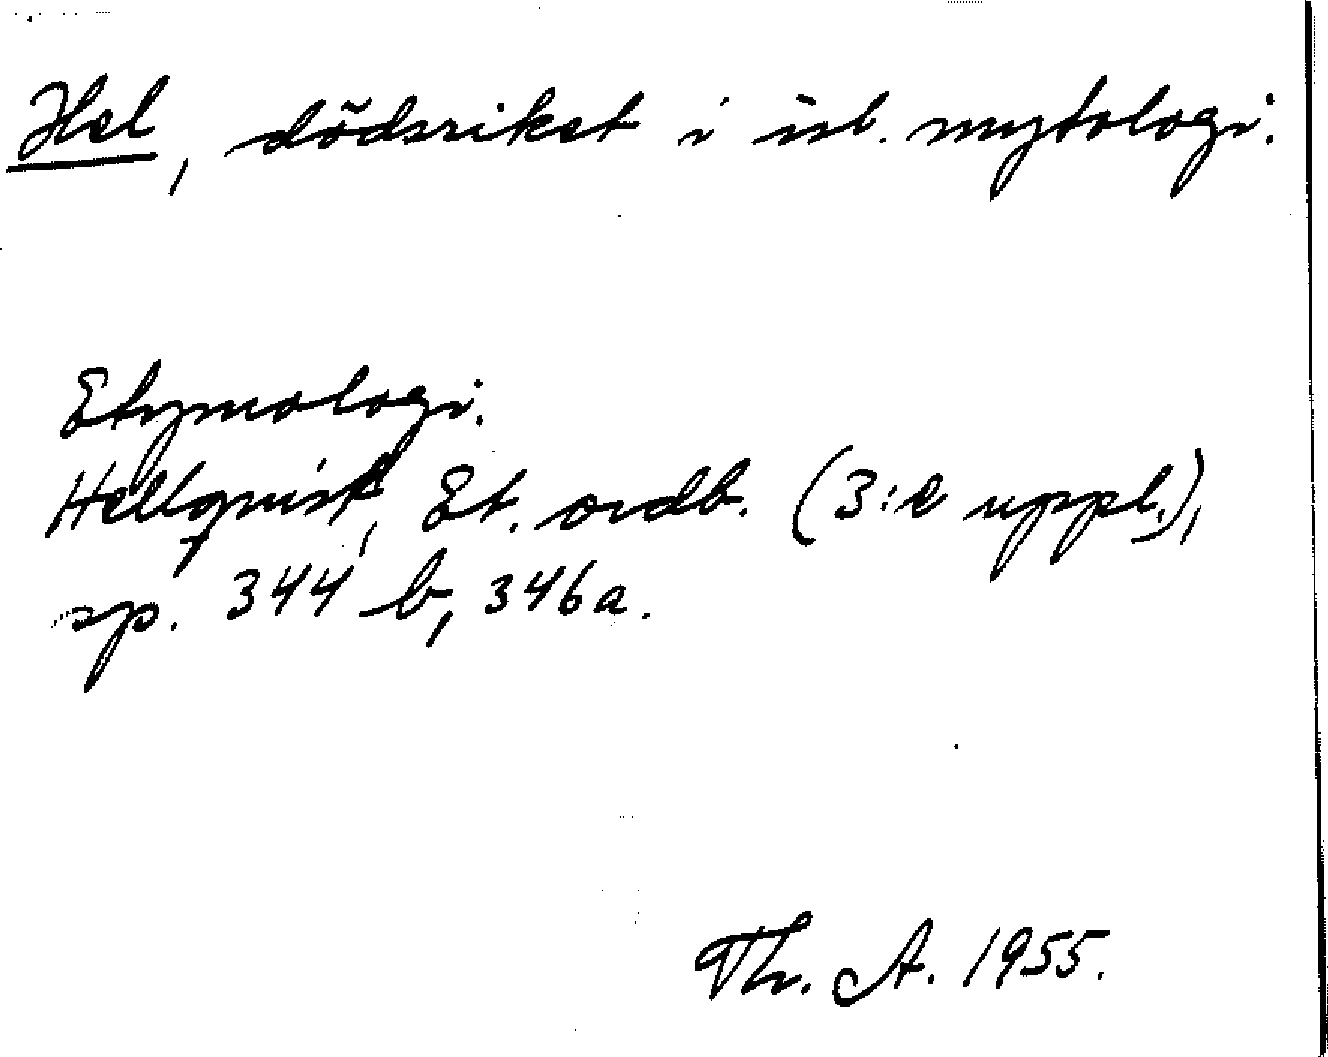 Hel, dödsriket i isl. mytologi.
Etymologi.
Hellquist, Et. ordb. (3:e uppl.),
sp. 344 b, 346a.
Th. A. 1955.